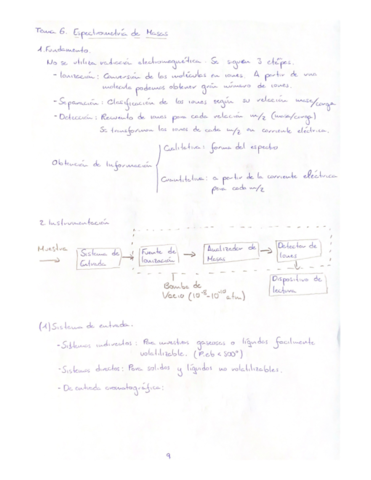 Tema 6. Espectrometría de Masas
1. Fundamento
No se utiliza radiación electromagnética. Se siguen 3 etapas.
- Ionización: Conversión de las moléculas en iones. A partir de una
molécula podemos obtener gran número de iones.
- Separación: Clasificación de los iones según su relación masa/carga
- Detección: Recuento de iones para cada relación m/z (masa/carga)
Se transforma los iones de cada m/z en corriente eléctrica.
Obtención de información
Cualitativa: forma del espectro
Cuantitativa: a partir de la corriente eléctrica
para cada m/z
2. Instrumentación
Muestra
Sistema de Entrada
Fuente de Ionización
Analizador de Masas
Detector de Iones
Bomba de
Vacío (10⁻⁵-10⁻⁸ atm)
Dispositivo de lectura
(1) Sistema de entrada.
- Sistemas indirectos: Para muestras gaseosas o líquidos facilmente
volatilizable. (P.eb < 500°)
- Sistemas directos: Para sólidos y líquidos no volatilizables.
- De entrada cromatográfica:
9